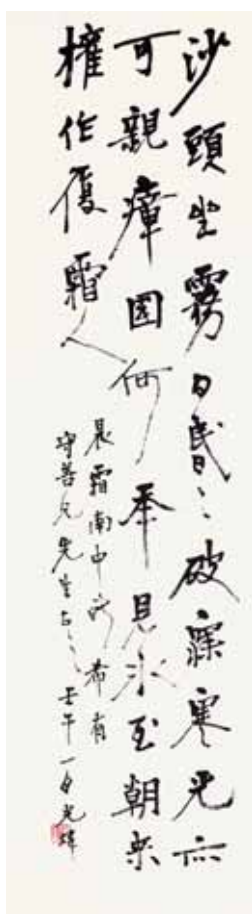 沙頭坐霧日昬〻破寐寒光亦
可親瘴國何年見冰玉朝來
權作履霜人
晨霜南中所希有
兄先生正之 壬午一月光煒